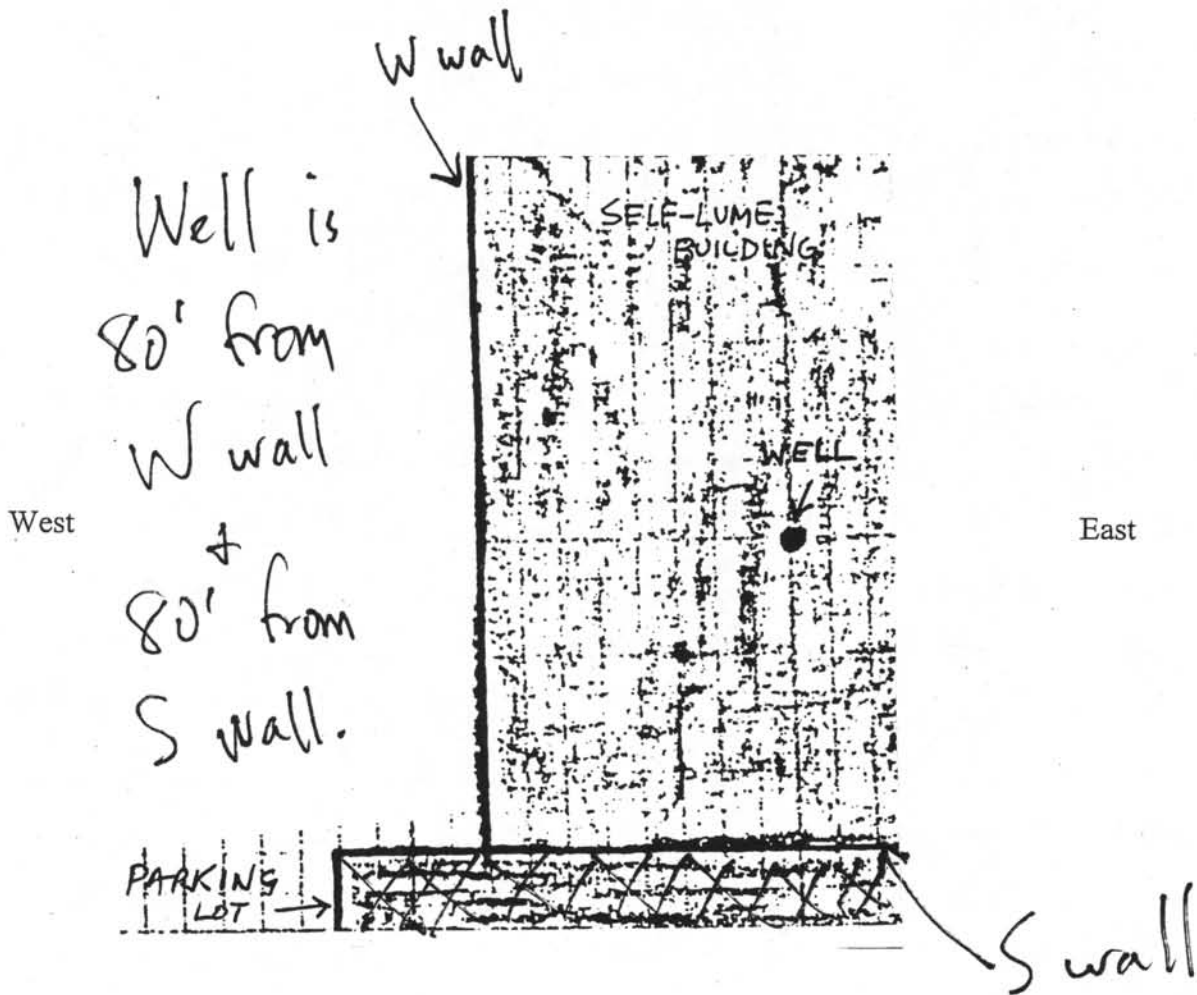 W wall
Well is
80' from
W wall
+
80' from
S wall.
SELF-LUME
BUILDING
WELL
West
East
PARKING
LOT
S wall